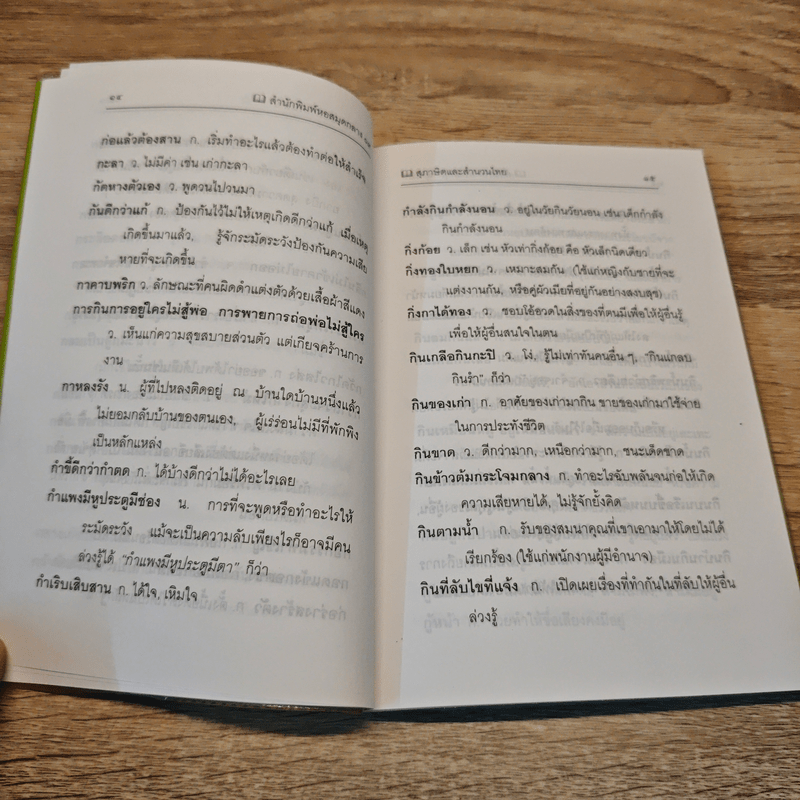 ๑๔ สำนักพิมพ์หอสมุดกลาง ๐๙
ก่อแล้วต้องสาน ก. เริ่มทำอะไรแล้วต้องทำต่อให้สำเร็จ
กะลา ว. ไม่มีค่า เช่น เก่ากะลา
กัดหางตัวเอง ว. พูดวนไปวนมา
กันดีกว่าแก้ ก. ป้องกันไว้ไม่ให้เหตุเกิดดีกว่าแก้ เมื่อเหตุ
เกิดขึ้นมาแล้ว, รู้จักระมัดระวังป้องกันความเสีย
หายที่จะเกิดขึ้น
กาคาบพริก ว. ลักษณะที่คนผิดดำแต่งตัวด้วยเสื้อผ้าสีแดง
การกินการอยู่ใครไม่สู้พ่อ การพายการถ่อพ่อไม่สู้ใคร
ว. เห็นแก่ความสุขสบายส่วนตัว แต่เกียจคร้านการ
งาน
กาหลงรัง น. ผู้ที่ไปหลงติดอยู่ ณ บ้านใดบ้านหนึ่งแล้ว
ไม่ยอมกลับบ้านของตนเอง, ผู้เร่ร่อนไม่มีที่พักพิง
เป็นหลักแหล่ง
กำขี้ดีกว่ากำตด ก. ได้บ้างดีกว่าไม่ได้อะไรเลย
กำแพงมีหูประตูมีช่อง น. การที่จะพูดหรือทำอะไรให้
ระมัดระวัง แม้จะเป็นความลับเพียงไรก็อาจมีคน
ล่วงรู้ได้ "กำแพงมีหูประตูมีตา" ก็ว่า
กำเริบเสิบสาน ก. ได้ใจ, เหิมใจ
สุภาษิตและสำนวนไทย ๑๕
กำลังกินกำลังนอน ว. อยู่ในวัยกินวัยนอน เช่น เด็กกำลัง
กินกำลังนอน
กิ่งก้อย ว. เล็ก เช่น หัวเท่ากิ่งก้อย คือ หัวเล็กนิดเดียว
กิ่งทองใบหยก ว. เหมาะสมกัน (ใช้แก่หญิงกับชายที่จะ
แต่งงานกัน, หรือคู่ผัวเมียที่อยู่กันอย่างสงบสุข)
กิ้งกาได้ทอง ว. ชอบโอ้อวดในสิ่งของที่ตนมีเพื่อให้ผู้อื่นรู้
เพื่อให้ผู้อื่นสนใจในตน
กินเกลือกินกะปิ ว. โง่, รู้ไม่เท่าทันคนอื่น ๆ, "กินแกลบ
กินรำ" ก็ว่า
กินของเก่า ก. อาศัยของเก่ามากิน ขายของเก่ามาใช้จ่าย
ในการประทังชีวิต
กินขาด ว. ดีกว่ามาก, เหนือกว่ามาก, ชนะเด็ดขาด
กินข้าวต้มกระโจมกลาง ก. ทำอะไรฉับพลันจนก่อให้เกิด
ความเสียหายได้, ไม่รู้จักยั้งคิด
กินตามน้ำ ก. รับของสมนาคุณที่เขาเอามาให้โดยไม่ได้
เรียกร้อง (ใช้แก่พนักงานผู้มีอำนาจ)
กินที่ลับไขที่แจ้ง ก. เปิดเผยเรื่องที่ทำกันในที่ลับให้ผู้อื่น
ล่วงรู้